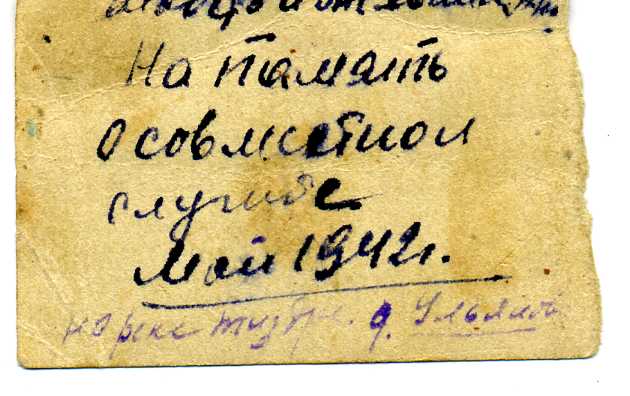 На память
о совместной
службе
Май 1942г.
на реке д. Ульян